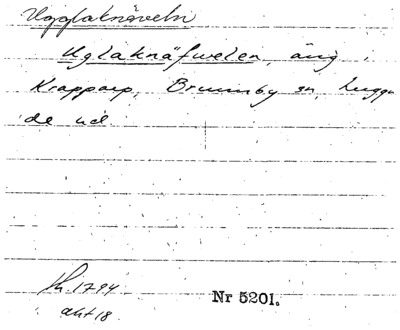 Ugglaknäveln
Uglaknäfwelen, äng i
Krapparp, Brunnby sn, Luggu
de ud
Lh. 1794
akt 18.
Nr 5201.